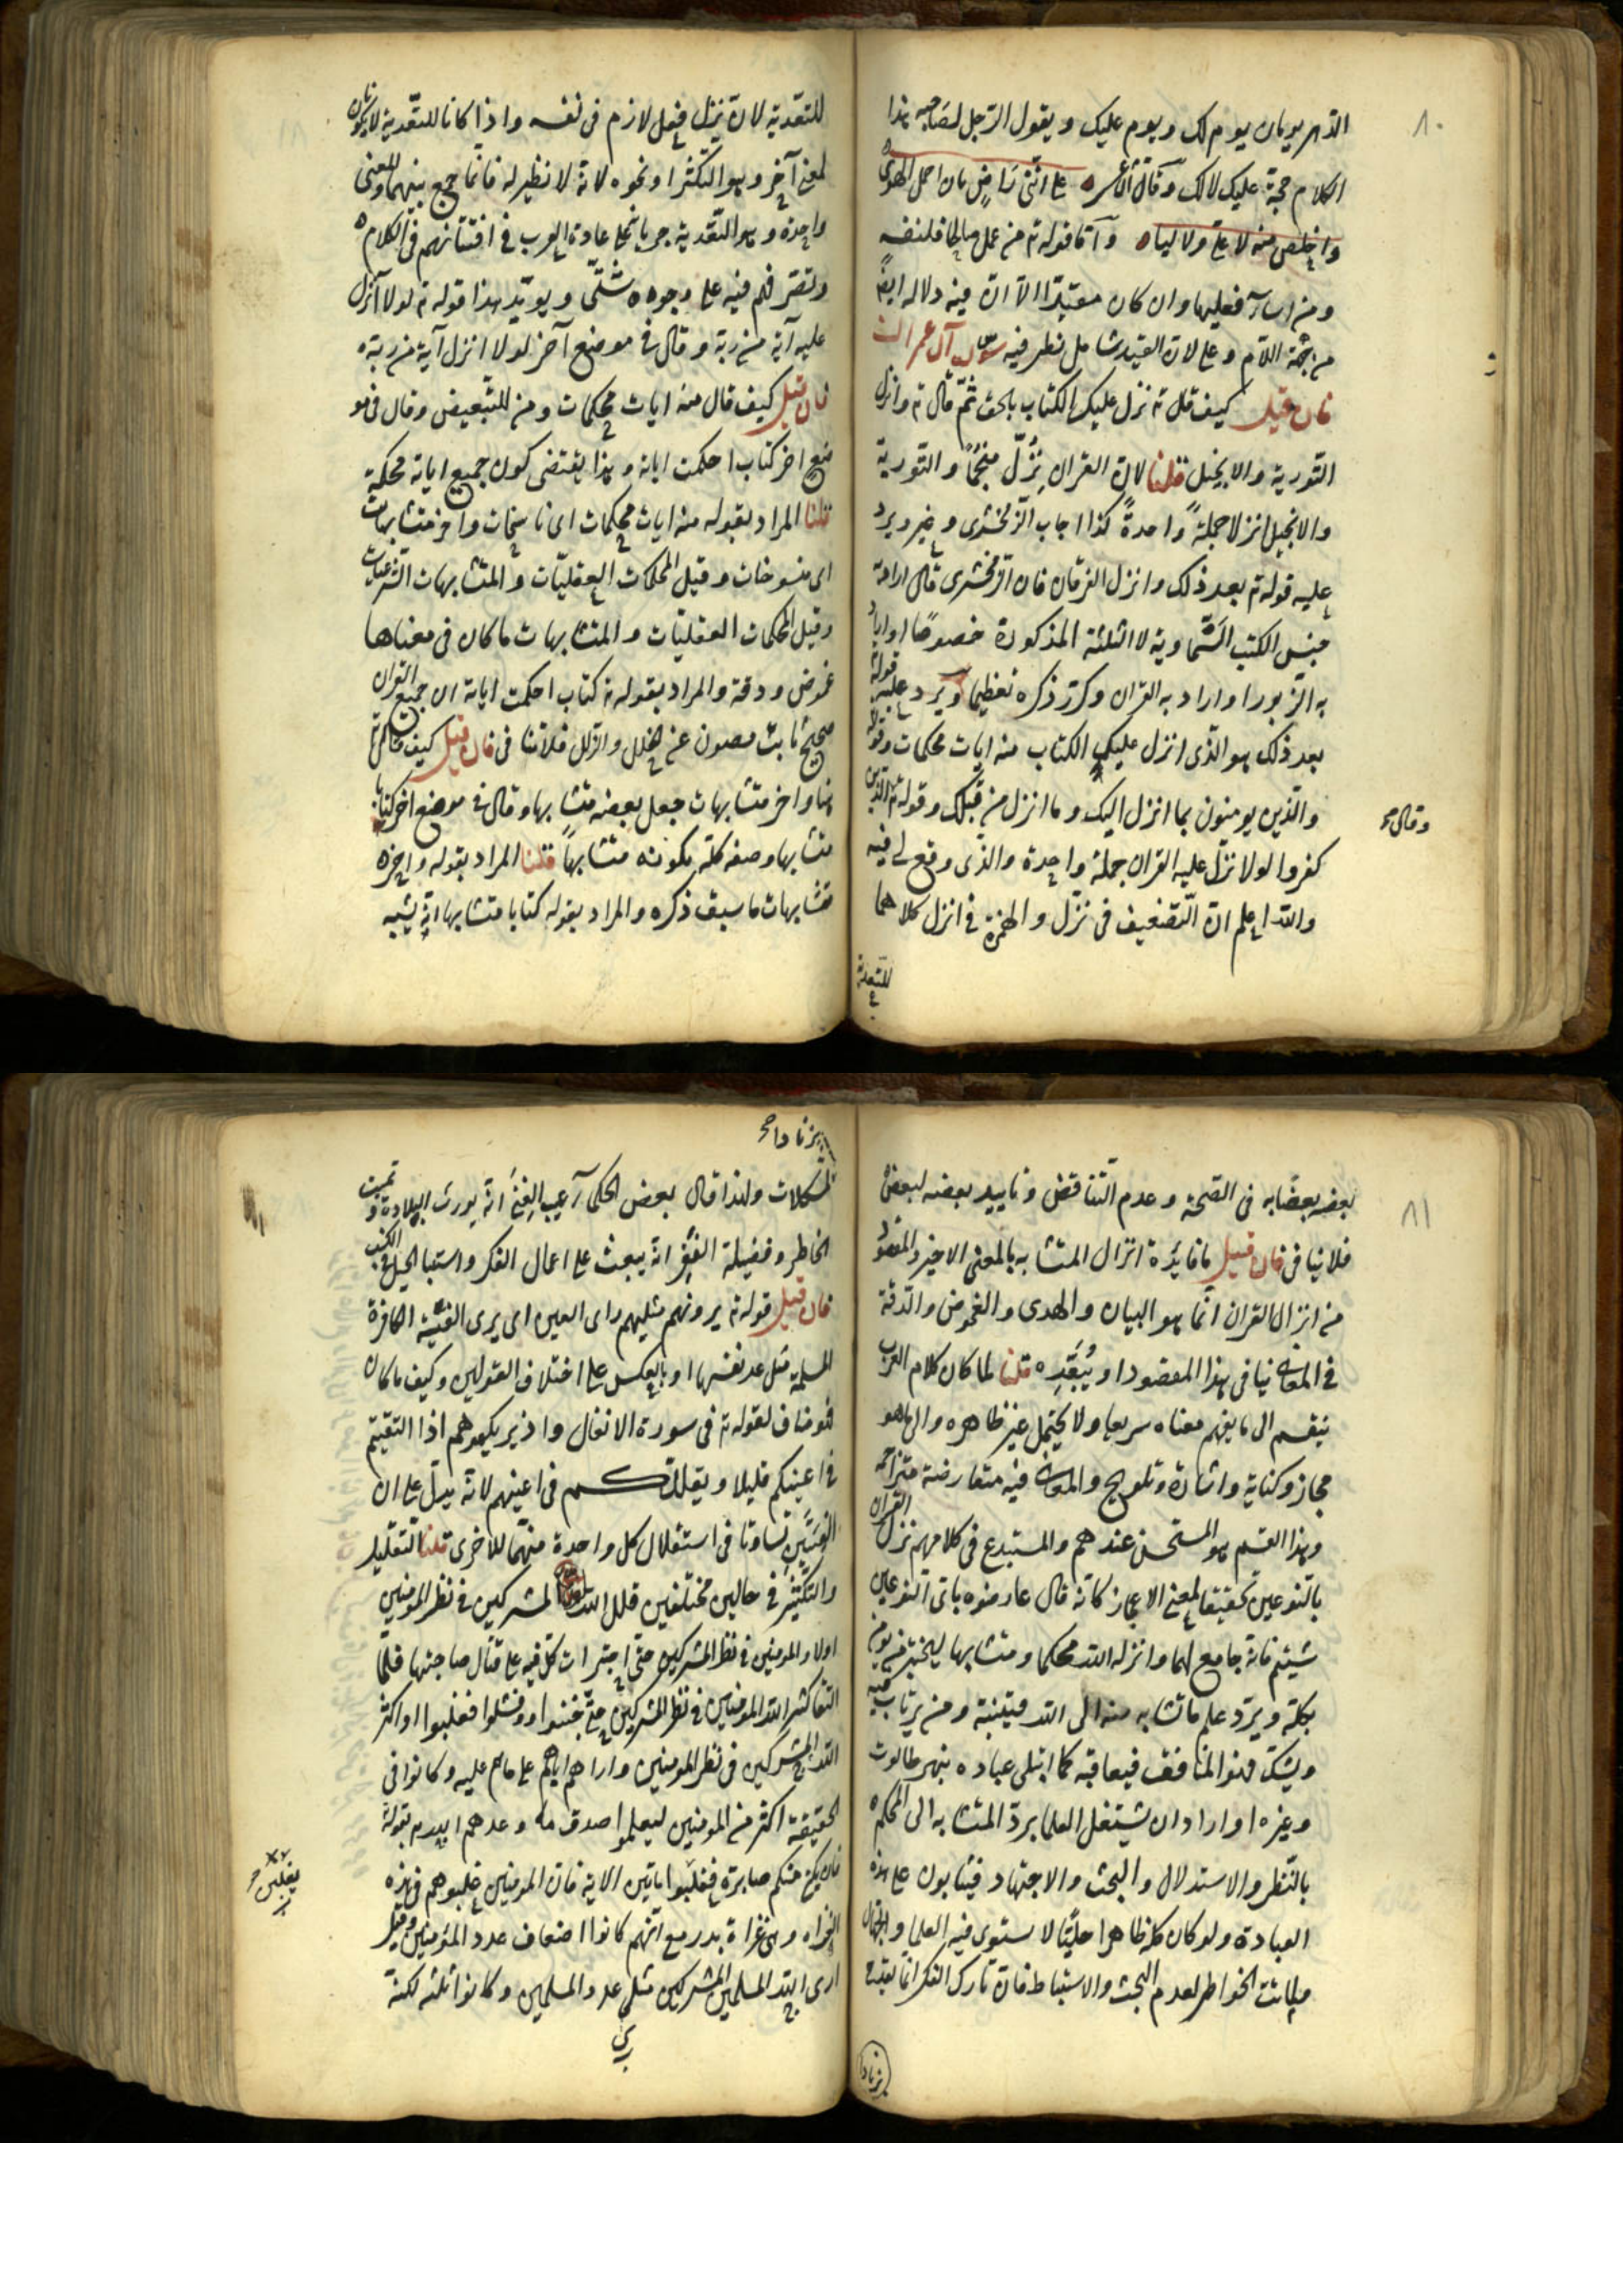 ٨٠
الدهر يومان يوم لك ويوم عليك ويقول الرّجل لصاحبه هذا
الكلام حجّة عليك لا لك وقال الشاعر على انّنى رَاضٍ بان احمل الهوى
واخلص منه لا علىّ ولا ليا وامّا قوله تم من عمل صالحا فلنفسه
ومن اسآء فعليها وان كان مقيّدا الّا انّ فيه دلالة ايضً
من جهة اللام وعلى لان القيد شامل نظر فيه سورة آل عمران
فان قيل كيف قال تم نزل عليك الكتاب بالحق ثمّ قال تم وانزل
التّورية والانجيل قلنا لانّ القران نُزّل منجّمًا والتورية
والانجيل انزلا جملةً واحدةً كذا اجاب الزّمخشرى وغيره ويرد
عليه قوله تم بعد ذلك وانزل الفرقان فان الزمخشرى قال اراد به
جنس الكتب السّماوية لا الثلثة المذكورة خصوصًا او اراد
به الزّبور او اراد به القران وكرّر ذكره تعظيما ويرد عليه قوله
بعد ذلك هو الّذى انزل عليك الكتاب منه ايات محكمات وقوله
والّذين يومنون بما انزل اليك وما انزل من قبلك وقوله تم الّذين
وقال
كفروا لولا نزّل عليه القران جملة واحدة والّذى وقع لى فيه
والله اعلم انّ التّضعيف فى نزّل والهمزة فى انزل كلاهما
للتعدية
للتّعدية لانّ نزل فعل لازم فى نفسه واذا كانا للتّعدية لا يكونان
لمعنى آخر وهو التكثر او نحوه لانّه لا نظير له فانّما جمع بينهما والمعنى
واحد وهو التّعدية جريا على عادة العرب فى افتنانهم فى الكلام
وتصرّفهم فيه على وجوه شتّى ويويّد هذا قوله تم لولا انزل
عليه آية من ربّه وقال فى موضع آخر لولا انزل آية من ربّه
فان قيل كيف قال منه ايات محكمات ومن للتّبعيض وقال فى مو
ضع اخر كتاب احكمت اياته وهذا يقتضى كون جميع اياته محكمة
قلنا المراد بقوله منه ايات محكمات اى ناسخات واخر متشابهات
اى منسوخات وقيل المحكمات العقليّات والمتشابهات الشّرعيّات
وقيل المحكمات العقليّات والمتشابهات ما كان فى معناها
غموض ودقة والمراد بقوله تم كتاب احكمت اياته ان جميع القران
صحيح ثابت مصون عن الخلل والزلل فلا تنا فى فان قيل كيف قال تم
هنا واخر متشابهات جعل بعضه متشابها وقال فى موضع اخر كتابا
متشابها وصفه كلّه بكونه متشابهاً قلنا المراد بقوله واخر
متشابهات ما سبق ذكره والمراد بقوله كتابا متشابها انّه يشبه
٨١
بعضه بعضًا به فى الصّحة وعدم التناقض وتاييد بعضه لبعض
فلا تنا فى فان قيل ما فائدة انزال المتشابه بالمعنى الاخير والمقصود
من انزال القران انّما هو البيان والهدى والغموض والدّقة
فى المعانى ينافى هذا المقصود او يُبَعِّده قلنا لما كان كلام العرب
ينقسم الى ما يفهم معناه سريعا ولا يحتمل غير ظاهره والى ما هو
مجاز وكناية واشارة وتلويح والمعانى فيه متعارضة متزاحمة
وهذا القسم هو المستحسن عندهم والمستبدع فى كلامهم نزل القران
بالنوعين تحقيقا لمعنى الاعجاز كانّه قال عارضوه باىّ النوعين
شئتم فانه جامع لهما وانزله الله محكما ومتشابها ليختبر من يؤمن
بكلّه ويردّ علم ما تشابه منه الى الله فيثيبه ومن يرتاب فيه
ويشكّ وهو المنافق فيعاقبه كما ابتلى عباده بنهر طالوت
وغيره او اراد ان يشتغل العلما بردّ المتشابه الى المحكم
بالنّظر والاستدلال والبحث والاجتهاد فيثابون على هذه
العبادة ولو كان كلّه ظاهرا جليًّا لاستوى فيه العلما والجهّال
ولماتت الخواطر لعدم البحث والاستباط فانّ
المشكلات ولهذا قال بعض الحكمآ عيب الغِنَى انّه يورث البلادة وتميت
الخاطر وفضيلة الفقر انّه يبعث على اعمال الفكر واستنباط الحيل فى الكسب
فان قيل قوله تم يرونهم مثليهم راى العين اى يرى الفئة الكافرة
المسلمة مثلى عدد نفسها او بالعكس على اختلاف القولين وكيف ما كان
فهو مناف لقوله تم فى سورة الانفال واذ يريكموهم اذا التقيتم
فى اعينكم قليلا ويقللكم فى اعينهم لانّه يدلّ على ان
الفئتين تساوتا فى استقلال كل واحدة منهما للاخرى قلنا التقليل
والتكثير فى حالين مختلفين قلل الله المشركين فى نظر المومنين
اولا والمومنين فى نظر المشركين حتى اجترات كل فيه على قتال صاحبتها فلمّا
التقتا كثر الله المومنين فى نظر المشركين حتّى جبنوا وفشلوا فغلبوا او اكثر
الله المشركين فى نظر المومنين واراهم اياهم على ما هم عليه وكانوا فى
الحقيقة اكثر من المومنين ليعلموا صدق ما وعدهم الله تم بقوله
فان يكن منكم صابرة فغلبوا مايتين الاية فان المومنين غلبوهم فى هذه
يغلبن
الغزاة وهى غزاة بدر مع انّهم كانوا اضعاف عدد المؤمنين وقيل
ارى الله المسلمين المشركين مثلى عدد المسلمين وكانوا ثلثه لكنّه